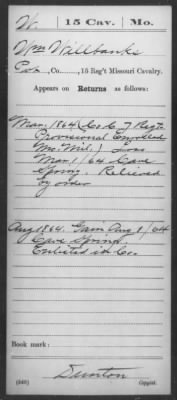 W. 15 Cav. Mo.
Wm Willbanks
Pvt., Co., 15 Reg't Missouri Cavalry.
Appears on Returns as follows:
Mar. 1864 (Co C 7 Regt.
Provisional Enrolled
Mo. Mil.) Loss
Mar 1/64 Cave
Spring. Relieved
by order
Aug 1864. Gain Aug 1/64
Cave Spring.
Enlisted in Co.
Book mark:
Dunton
(540) Copyist.